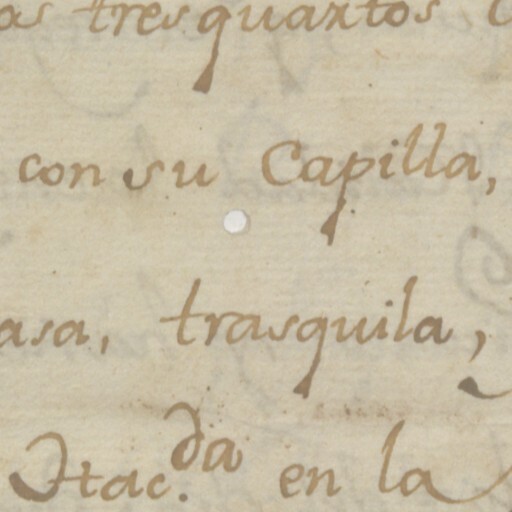 as tresquartos
con su Capilla,
asa, trasquila,
Htac.da en la